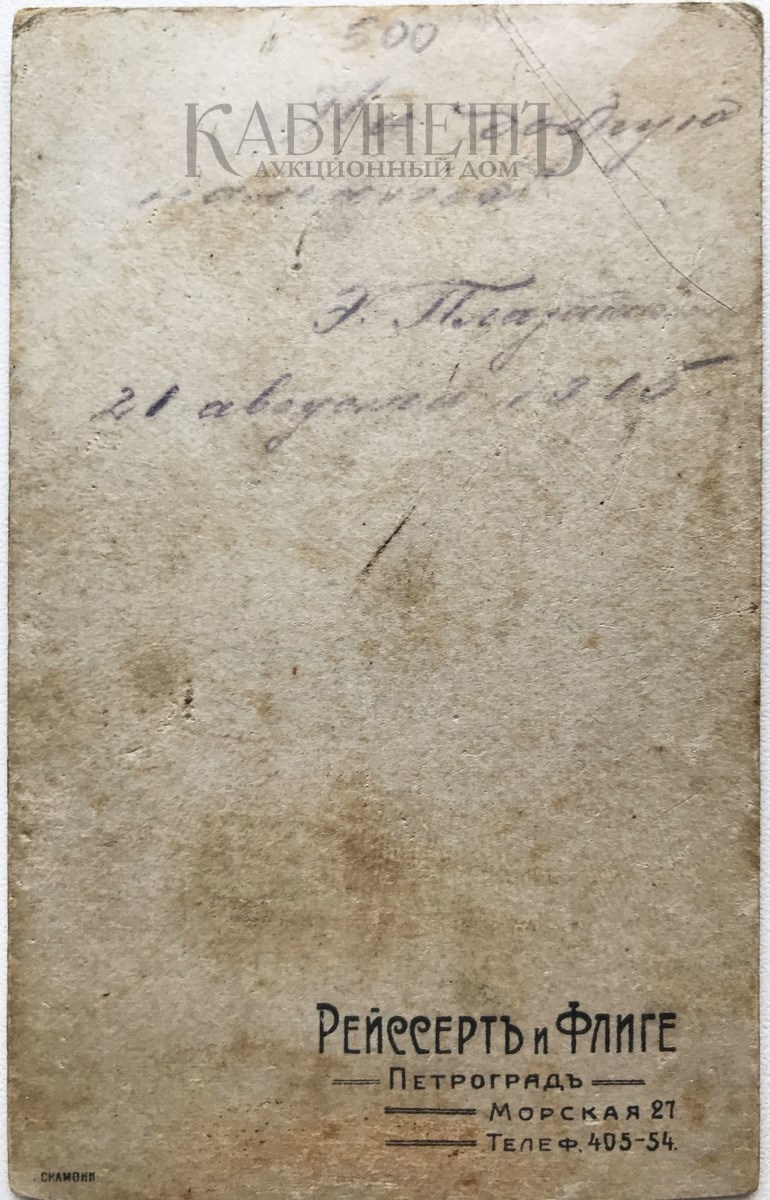 500
КАБИНЕТЪ
АУКЦИОННЫЙ ДОМ
На добрую
память
Э.
21 августа 1915
РЕЙССЕРТЪ и ФЛИГЕ
ПЕТРОГРАДЪ
МОРСКАЯ 27
ТЕЛЕФ. 405-54.
СКАМОНИ